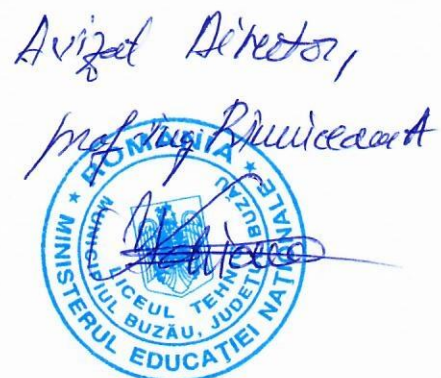 Avizat Director,
prof. ing. Rîmniceanu A
ROMÂNIA
MINISTERUL EDUCAȚIEI NAȚIONALE
LICEUL TEHN
MUNICIPIUL BUZĂU, JUDEȚ BUZĂU